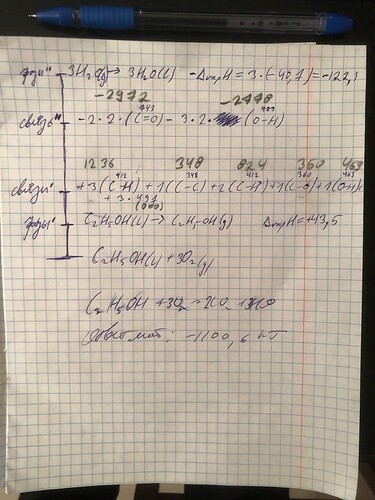 3H₂O(g) → 3H₂O(l) -ΔvapH = 3·(-40,7) = -122,1
-2972 -2778
743 463
-2·2·(C=O) - 3·2· (O-H)
1236 348 824 360 463
412 348 412 360 463
+3(C-H) + 1(C-C) + 2(C-H) + 1(C-O) + 1(O-H)
+ 3·497
(O=O)
C₂H₅OH(l) → C₂H₅OH(g) ΔvapH = +43,5
C₂H₅OH(l) + 3O₂(g)
C₂H₅OH + 3O₂ = 2CO₂ + 3H₂O
Ответ мой: -1100,6 кJ